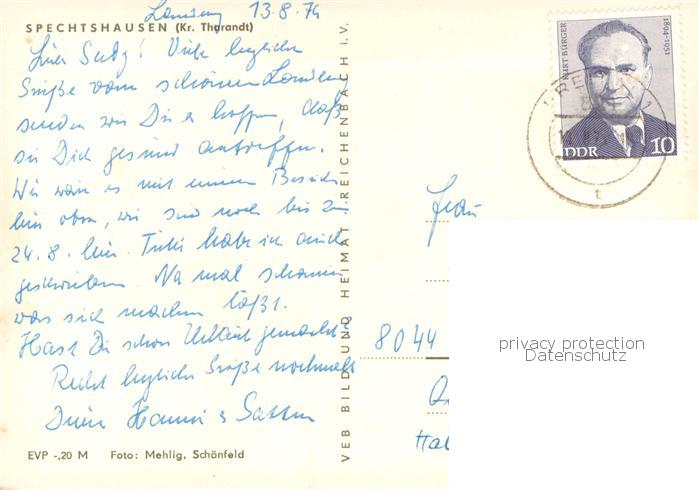 13.8.74
SPECHTSHAUSEN (Kr. Tharandt)
Viele herzliche
Grüße vom schönen
senden wir Dir & hoffen, daß
sie Dich gesund antreffen.
Wie wäre es mit einem Besuch
hier oben, wir sind noch bis zum
24.8. hier. habe ich auch
geschrieben. Na mal schauen
was sich machen läßt.
Hast Du schon Urlaub gemacht?
Recht herzliche Grüße nochmals
Deine Hanni &
EVP -,20 M Foto: Mehlig, Schönfeld
VEB BILD UND HEIMAT REICHENBACH I.V.
KURT BÜRGER
1894-1951
DDR 10
t
Frau
8044
privacy protection
Datenschutz